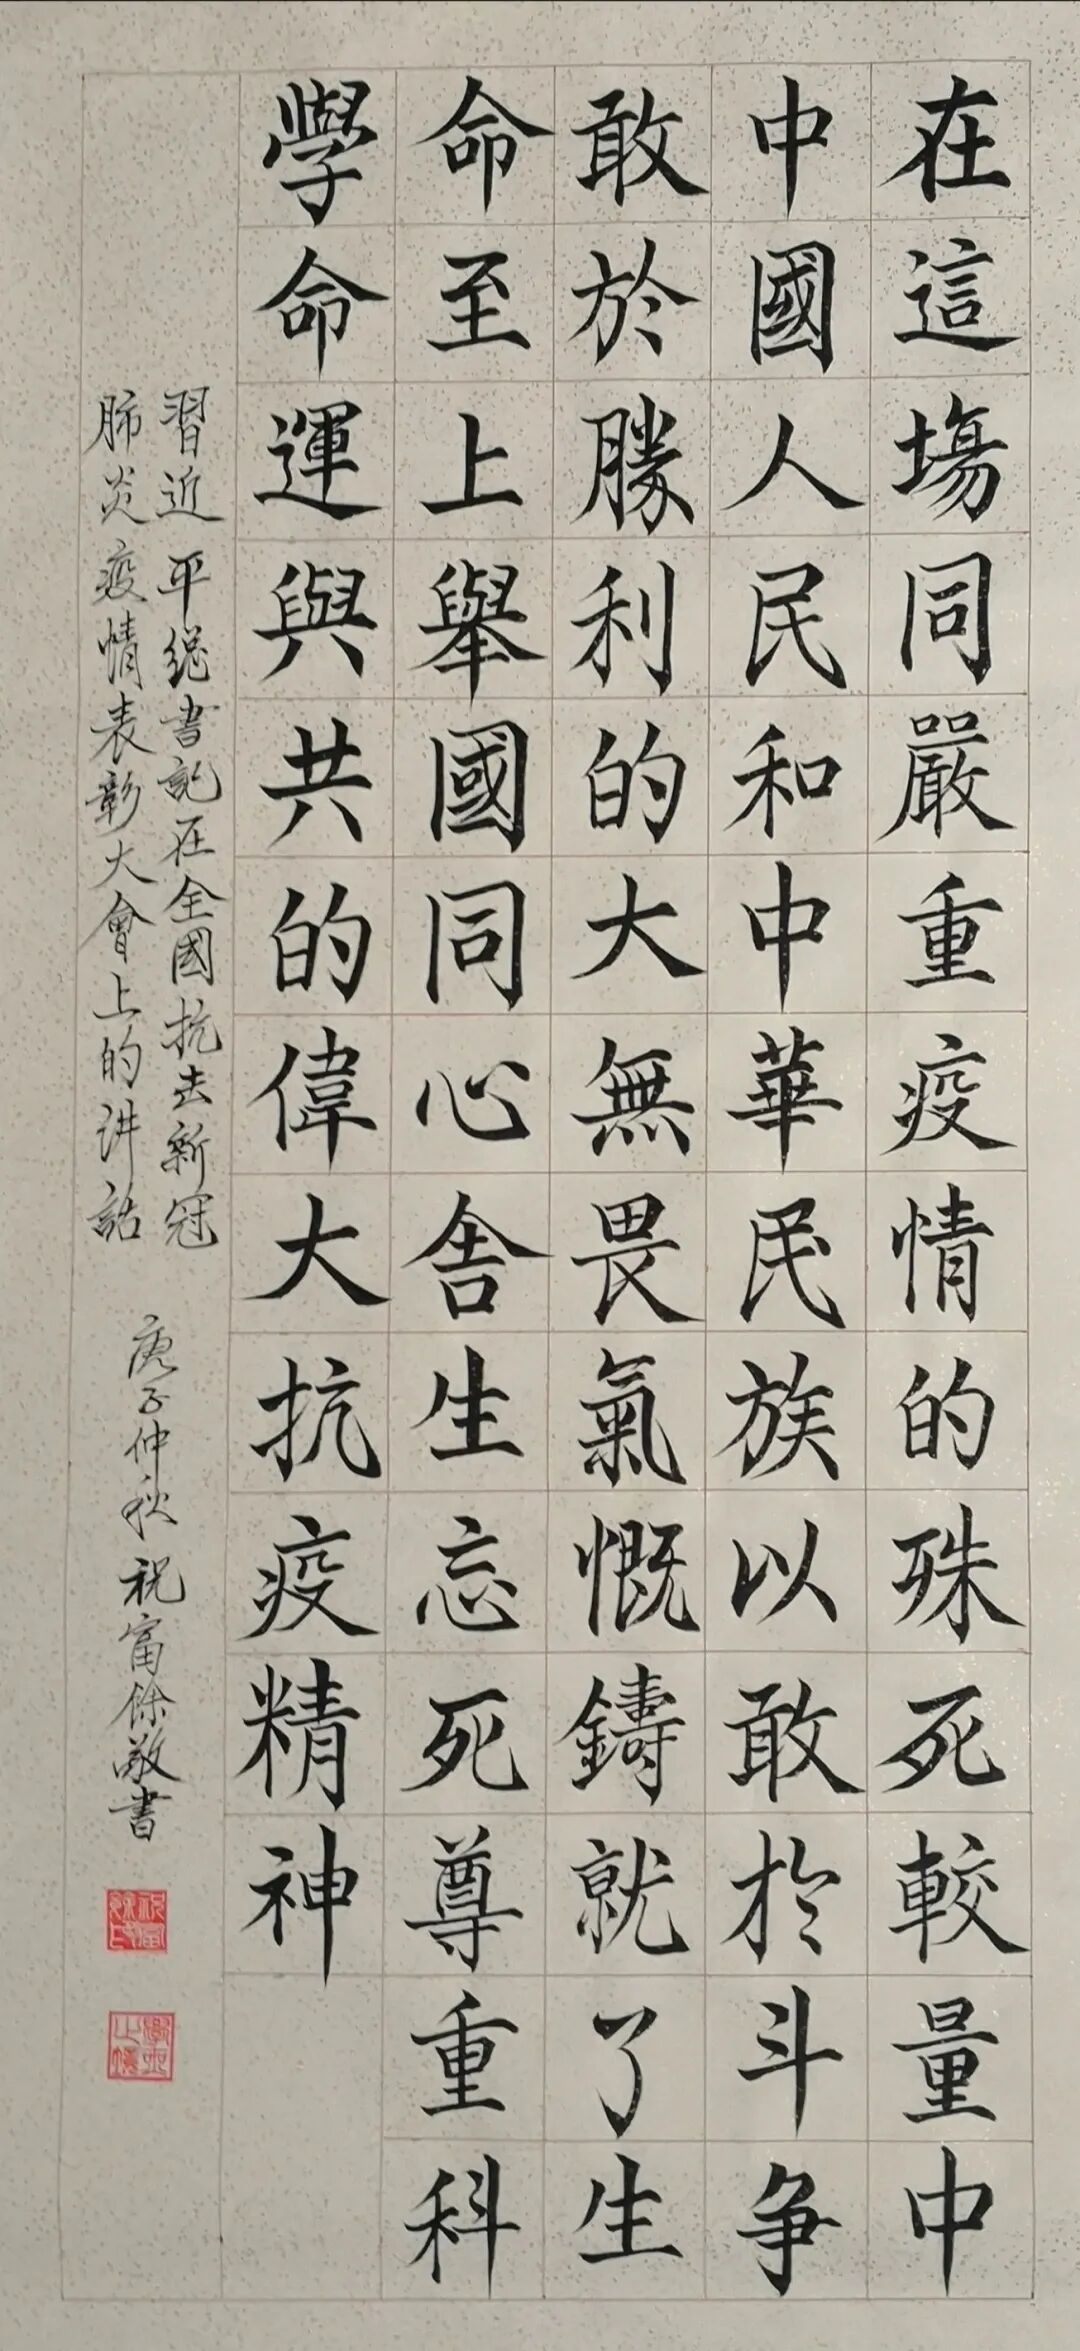 在這場同嚴重疫情的殊死較量中
中國人民和中華民族以敢於斗争
敢於勝利的大無畏氣慨鑄就了生
命至上舉國同心舍生忘死尊重科
學命運與共的偉大抗疫精神
習近平總書記在全國抗击新冠
肺炎疫情表彰大會上的讲話
庚子仲秋祝富餘敬書